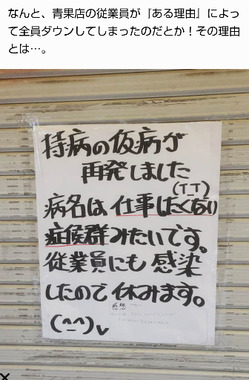 なんと、青果店の従業員が『ある理由』によっ
て全員ダウンしてしまったのだとか！その理由
とは…。
持病の仮病が
再発しました
(T.T)
病名は仕事したくない
症候群みたいです。
従業員にも感染
したので休みます。
(^-^)v